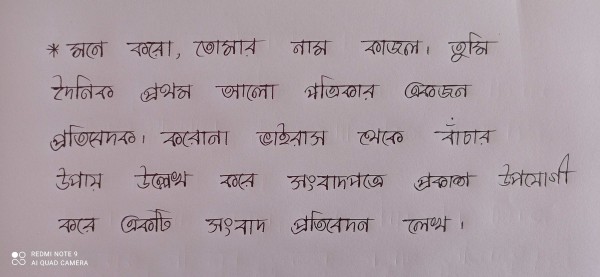 * মনে করো, তোমার নাম কাজল। তুমি
দৈনিক প্রথম আলো পত্রিকার একজন
প্রতিবেদক। করোনা ভাইরাস থেকে বাঁচার
উপায় উল্লেখ করে সংবাদপত্রে প্রকাশ উপযোগী
করে একটি সংবাদ প্রতিবেদন লেখ।
REDMI NOTE 9
AI QUAD CAMERA